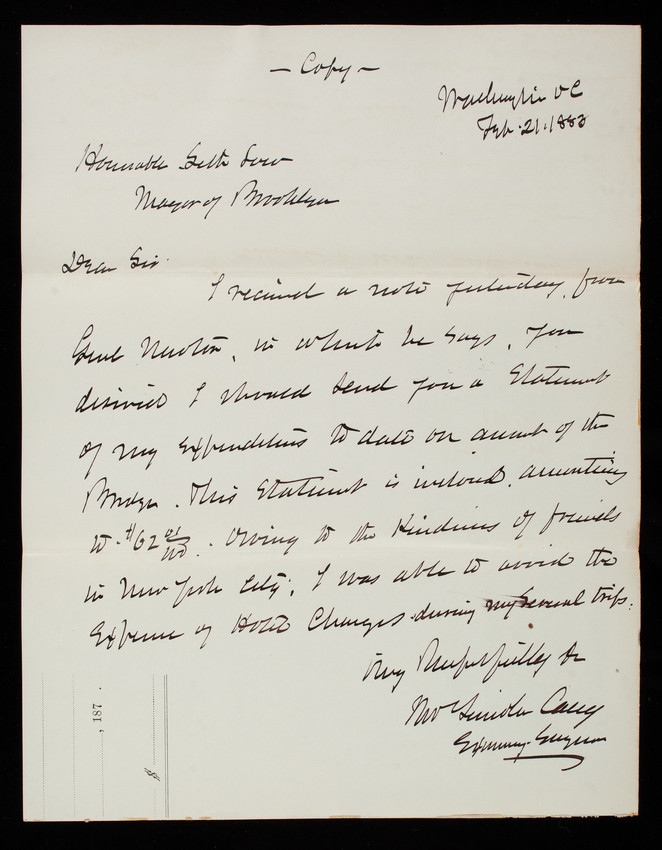 — Copy —
Washington DC
Feb. 21. 1883
Honorable Seth Low
Mayor of Brooklyn
Dear Sir
I received a note yesterday, from
Genl Newton, in which he says, you
desired I should send you a Statement
of my Expenditures to date on account of the
Bridge. This Statement is inclosed, amounting
to $62 01/100. Owing to the Kindness of friends
in New York City, I was able to avoid the
Expense of Hotel Charges during my several trips.
Very Respectfully &c
Thos Lincoln Casey
Engineer
, 187 .
$